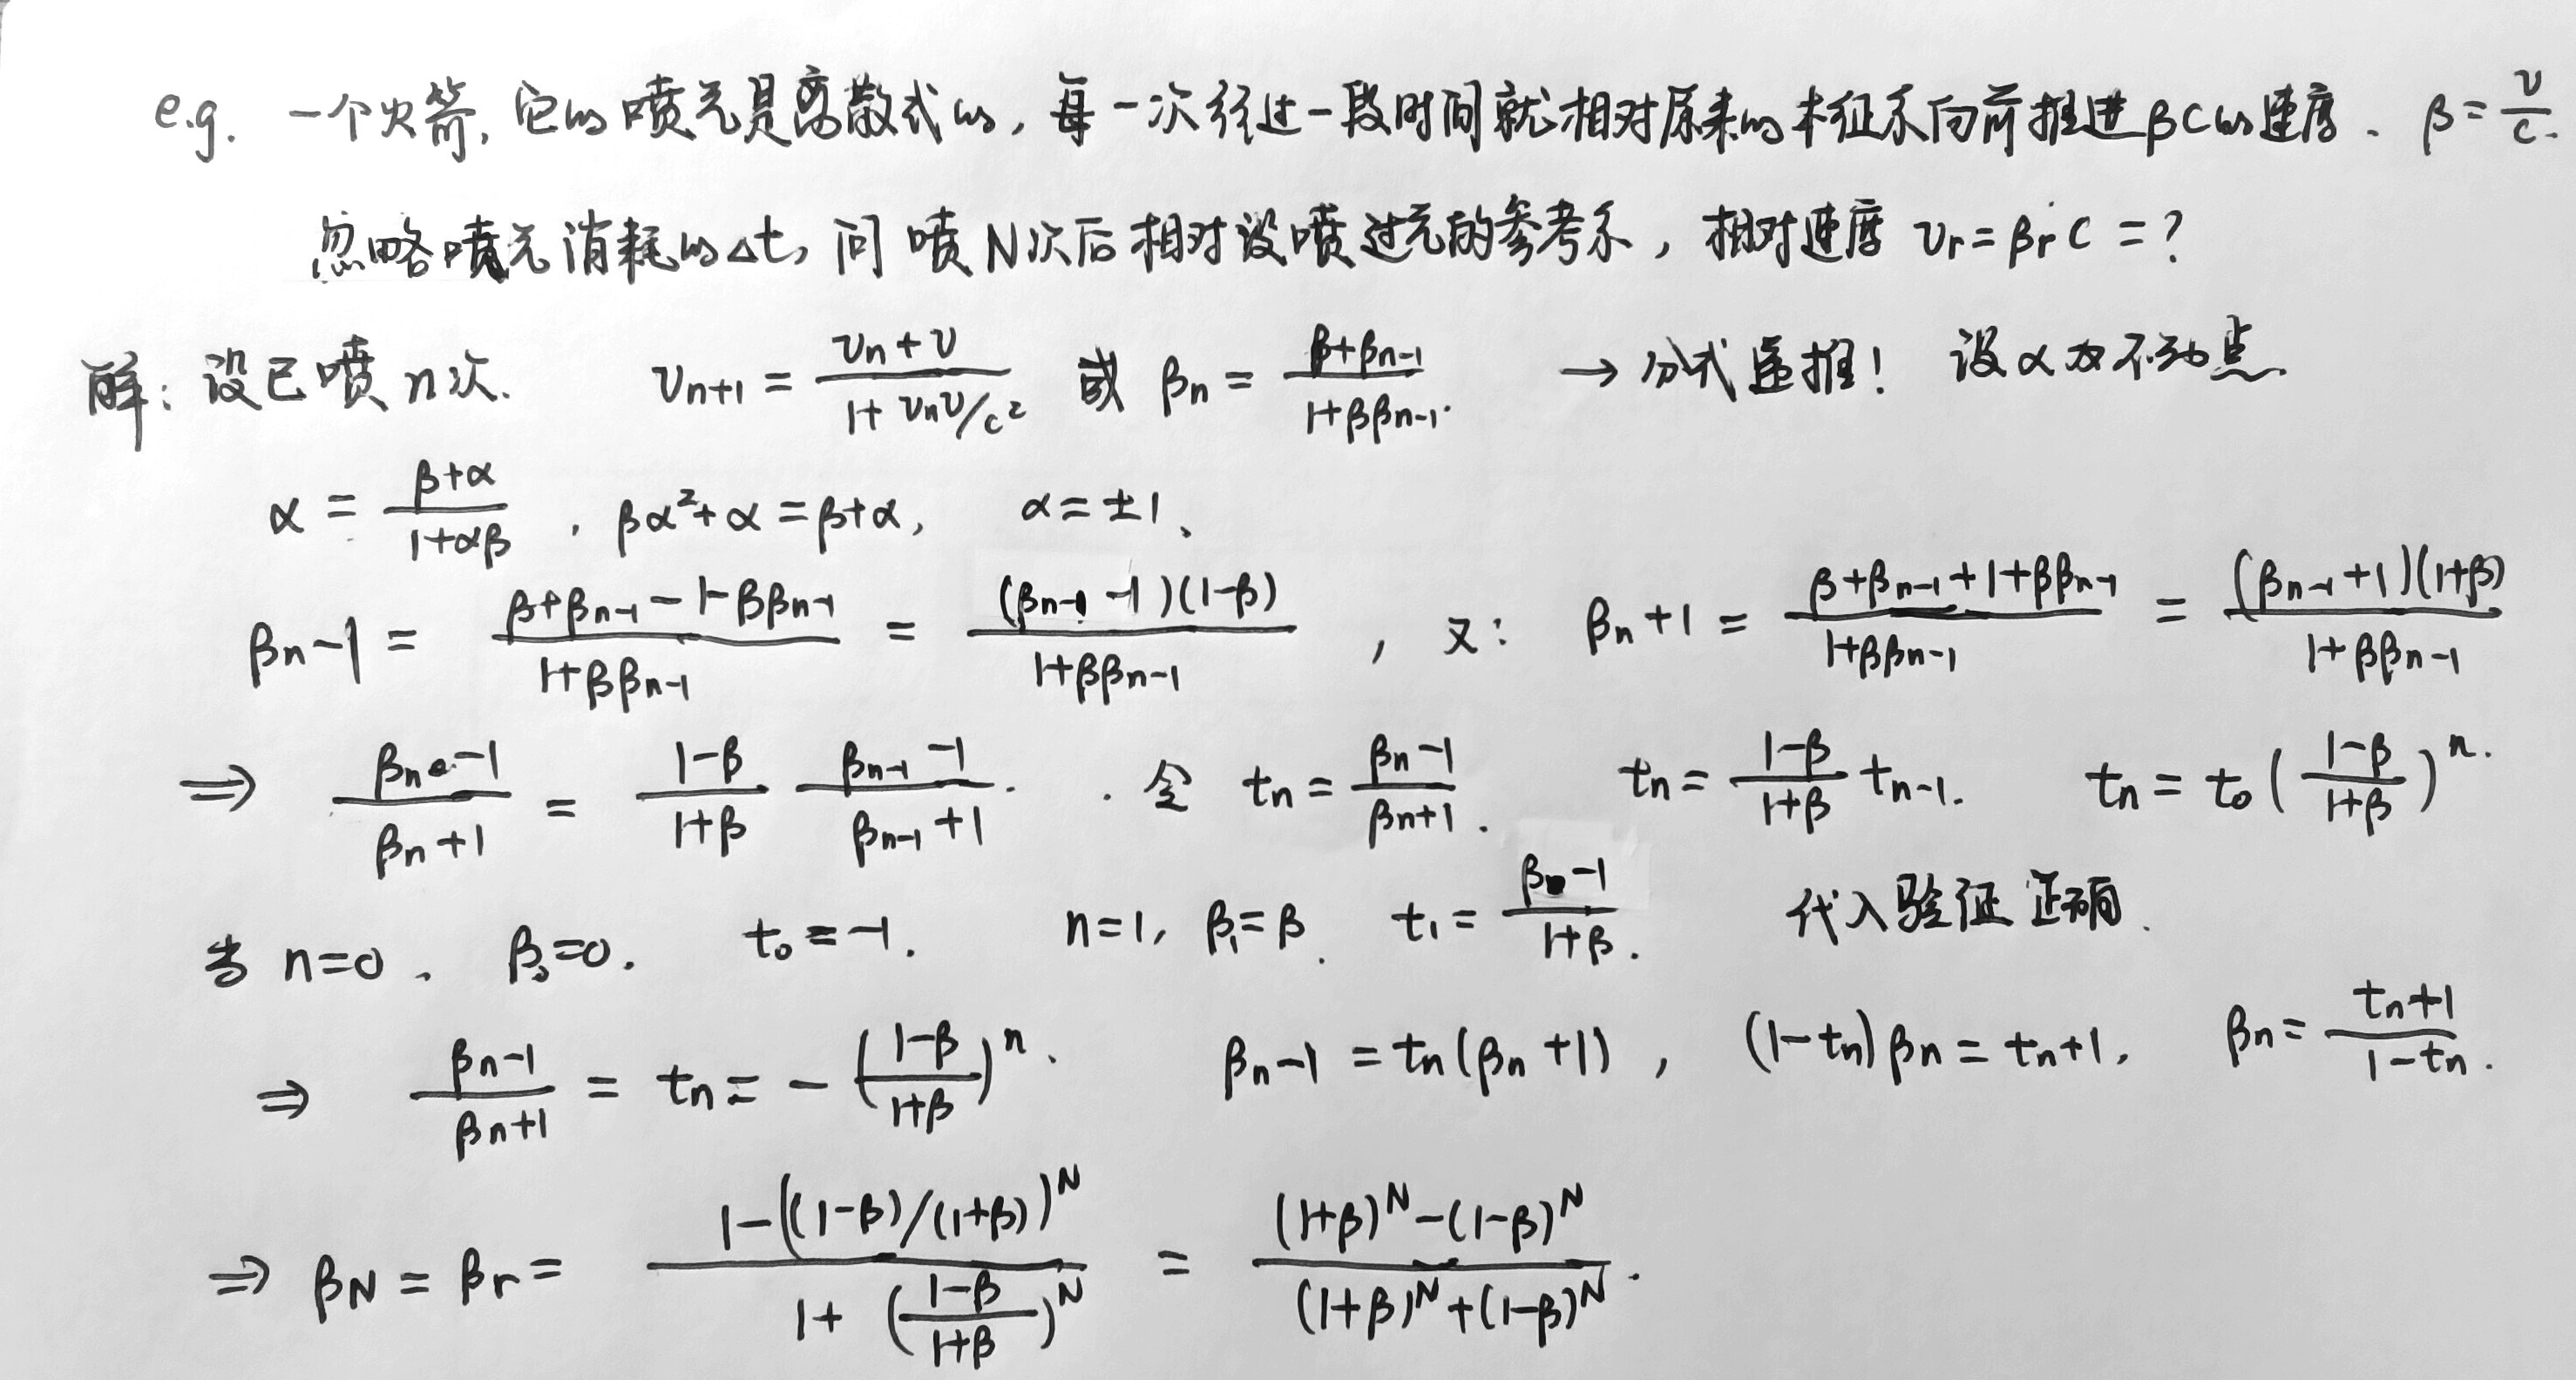 e.g. 一个火箭, 它的喷气是离散式的, 每一次往过一段时间就相对原来的本征系向前推进βc的速度. β = v/c.
忽略喷气消耗的Δt, 问喷N次后相对没喷过气的参考系, 相对速度 v_r = β_r c = ?
解: 设已喷n次. v_{n+1} = (v_n + v)/(1 + v_n v/c²) 或 β_n = (β+β_{n-1})/(1+ββ_{n-1}). → 分式递推! 设α为不动点.
α = (β+α)/(1+αβ), βα²+α = β+α, α = ±1.
β_n - 1 = (β+β_{n-1} - 1 - ββ_{n-1})/(1+ββ_{n-1}) = (β_{n-1} - 1)(1-β)/(1+ββ_{n-1}), 又: β_n + 1 = (β+β_{n-1}+1+ββ_{n-1})/(1+ββ_{n-1}) = (β_{n-1}+1)(1+β)/(1+ββ_{n-1})
⇒ (β_n - 1)/(β_n + 1) = (1-β)/(1+β) (β_{n-1} - 1)/(β_{n-1} + 1). 令 t_n = (β_n - 1)/(β_n + 1). t_n = (1-β)/(1+β) t_{n-1}. t_n = t_0 ((1-β)/(1+β))^n.
当 n=0, β_0=0. t_0 = -1. n=1, β_1=β. t_1 = (β-1)/(1+β). 代入验证正确.
⇒ (β_n - 1)/(β_n + 1) = t_n = -((1-β)/(1+β))^n. β_n - 1 = t_n(β_n + 1), (1-t_n)β_n = t_n+1, β_n = (t_n+1)/(1-t_n).
⇒ β_N = β_r = (1-((1-β)/(1+β))^N)/(1+((1-β)/(1+β))^N) = ((1+β)^N-(1-β)^N)/((1+β)^N+(1-β)^N).